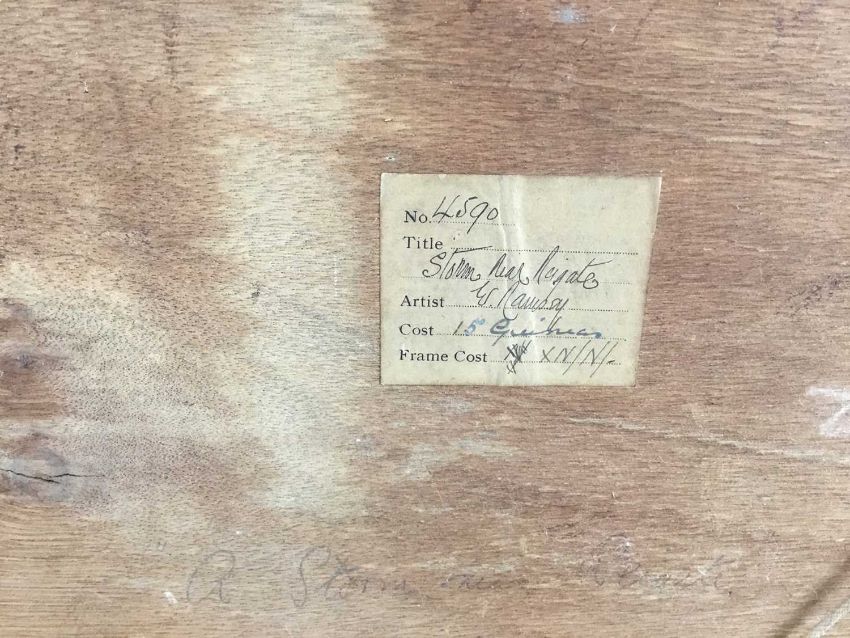 No. 4590
Title
Storm Near Reigate
Artist W. Ramsay
Cost 15 Guineas
Frame Cost XN/N/-
A Storm near Reigate